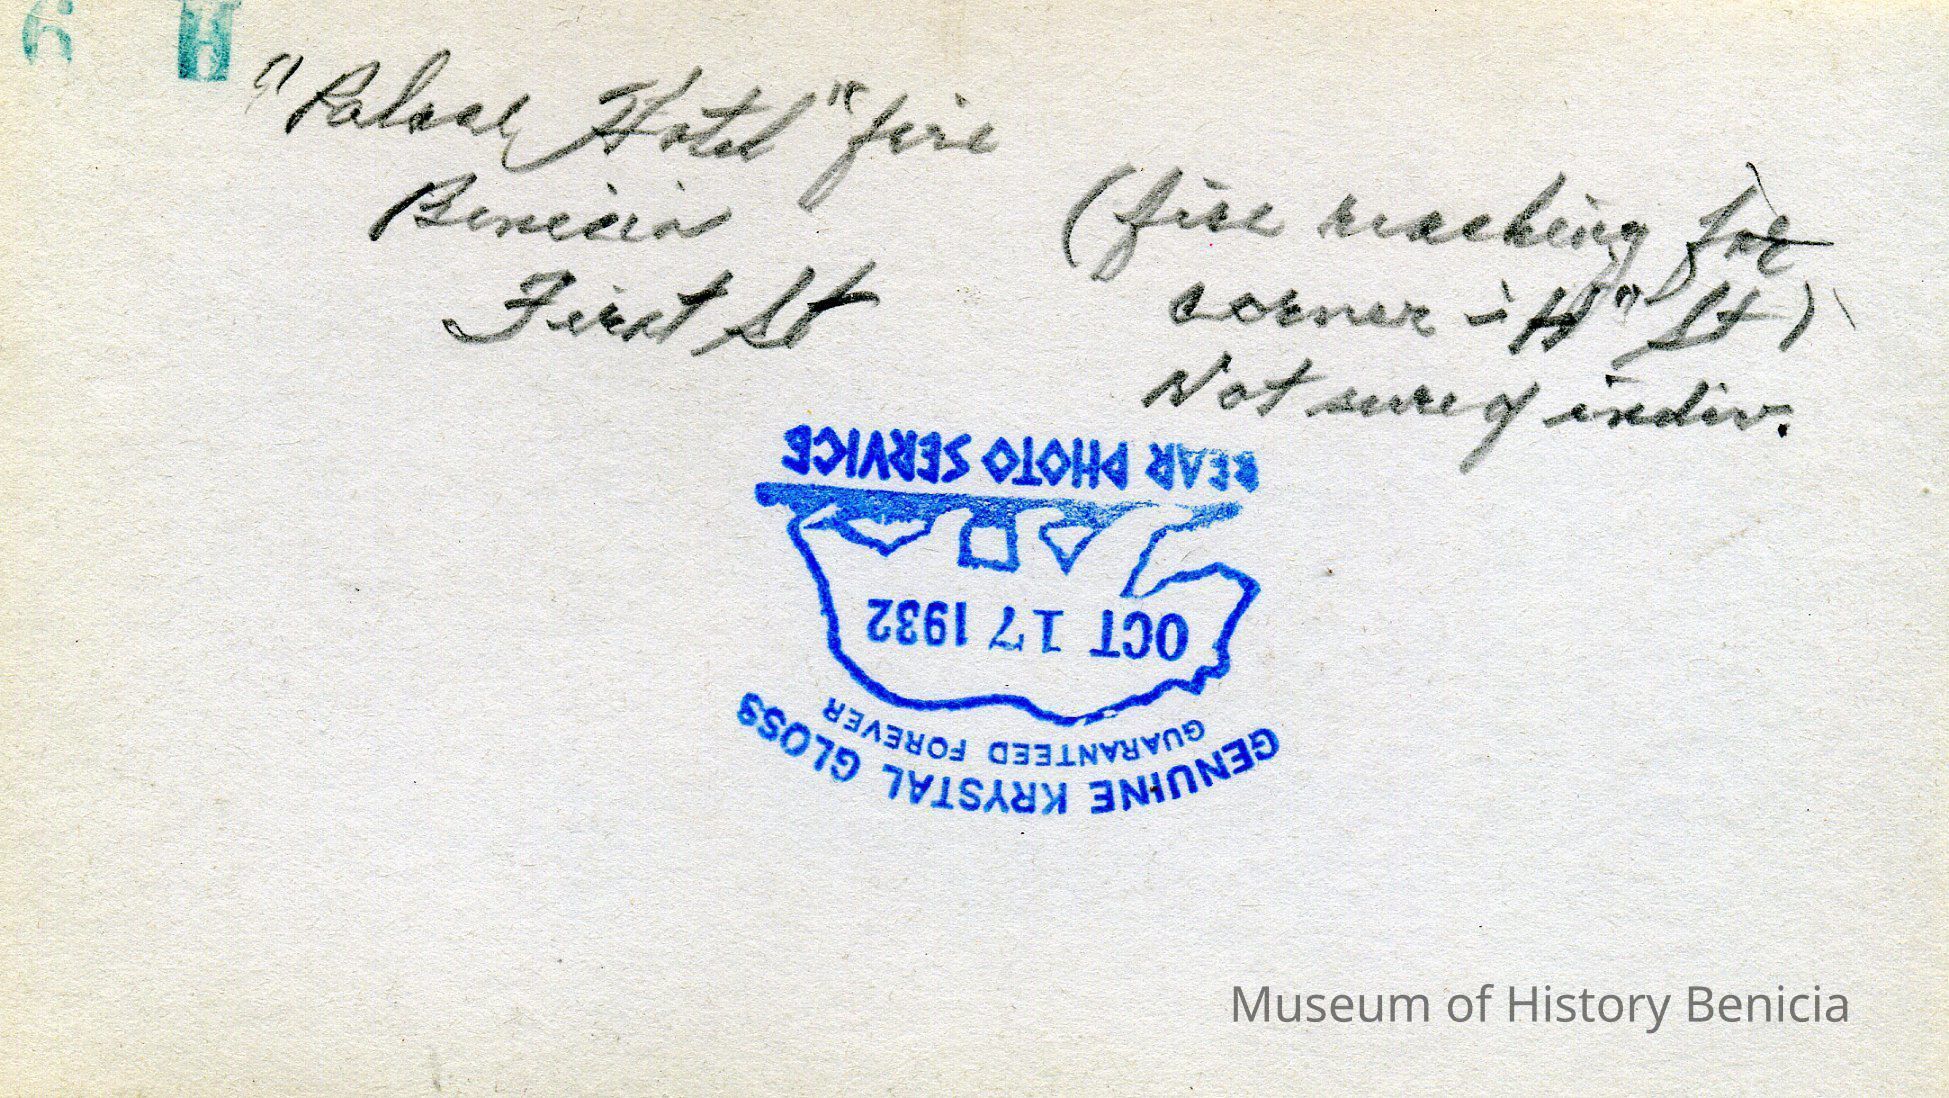 6 H
"Palace Hotel" fire
Benicia
First St
(fire reaching for
corner - "H" St)
Not sure of indiv.
BEAR PHOTO SERVICE
OCT 17 1932
GUARANTEED FOREVER
GENUINE KRYSTAL GLOSS
Museum of History Benicia